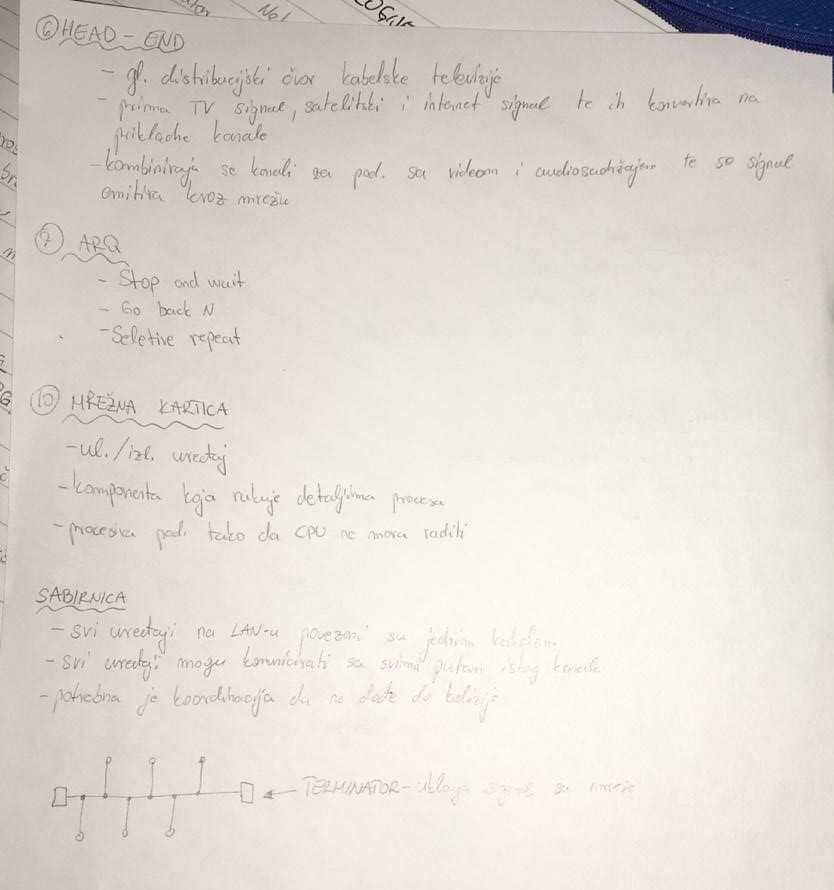 ⑥ HEAD-END
- gl. distribucijski čvor kabelske televizije
- prima TV signal, satelitski i internet signal te ih konvertira na
prikladne kanale
- kombiniraju se kanali za pod. sa videom i audiosadržajem te so signal
emitira kroz mrežu
⑦ ARQ
- Stop and wait
- Go back N
- Seletive repeat
⑩ MREŽNA KARTICA
- ul./izl. uređaj
- komponenta koja rukuje detaljima procesa
- procesira pod. tako da CPU ne mora raditi
SABIRNICA
- svi uređaji na LAN-u povezani su jednim kabelom
- svi uređaji mogu komunicirati sa svima putem istog kanala
- potrebna je koordinacija da ne dođe do kolizije
TERMINATOR - uklanja signal sa mreže